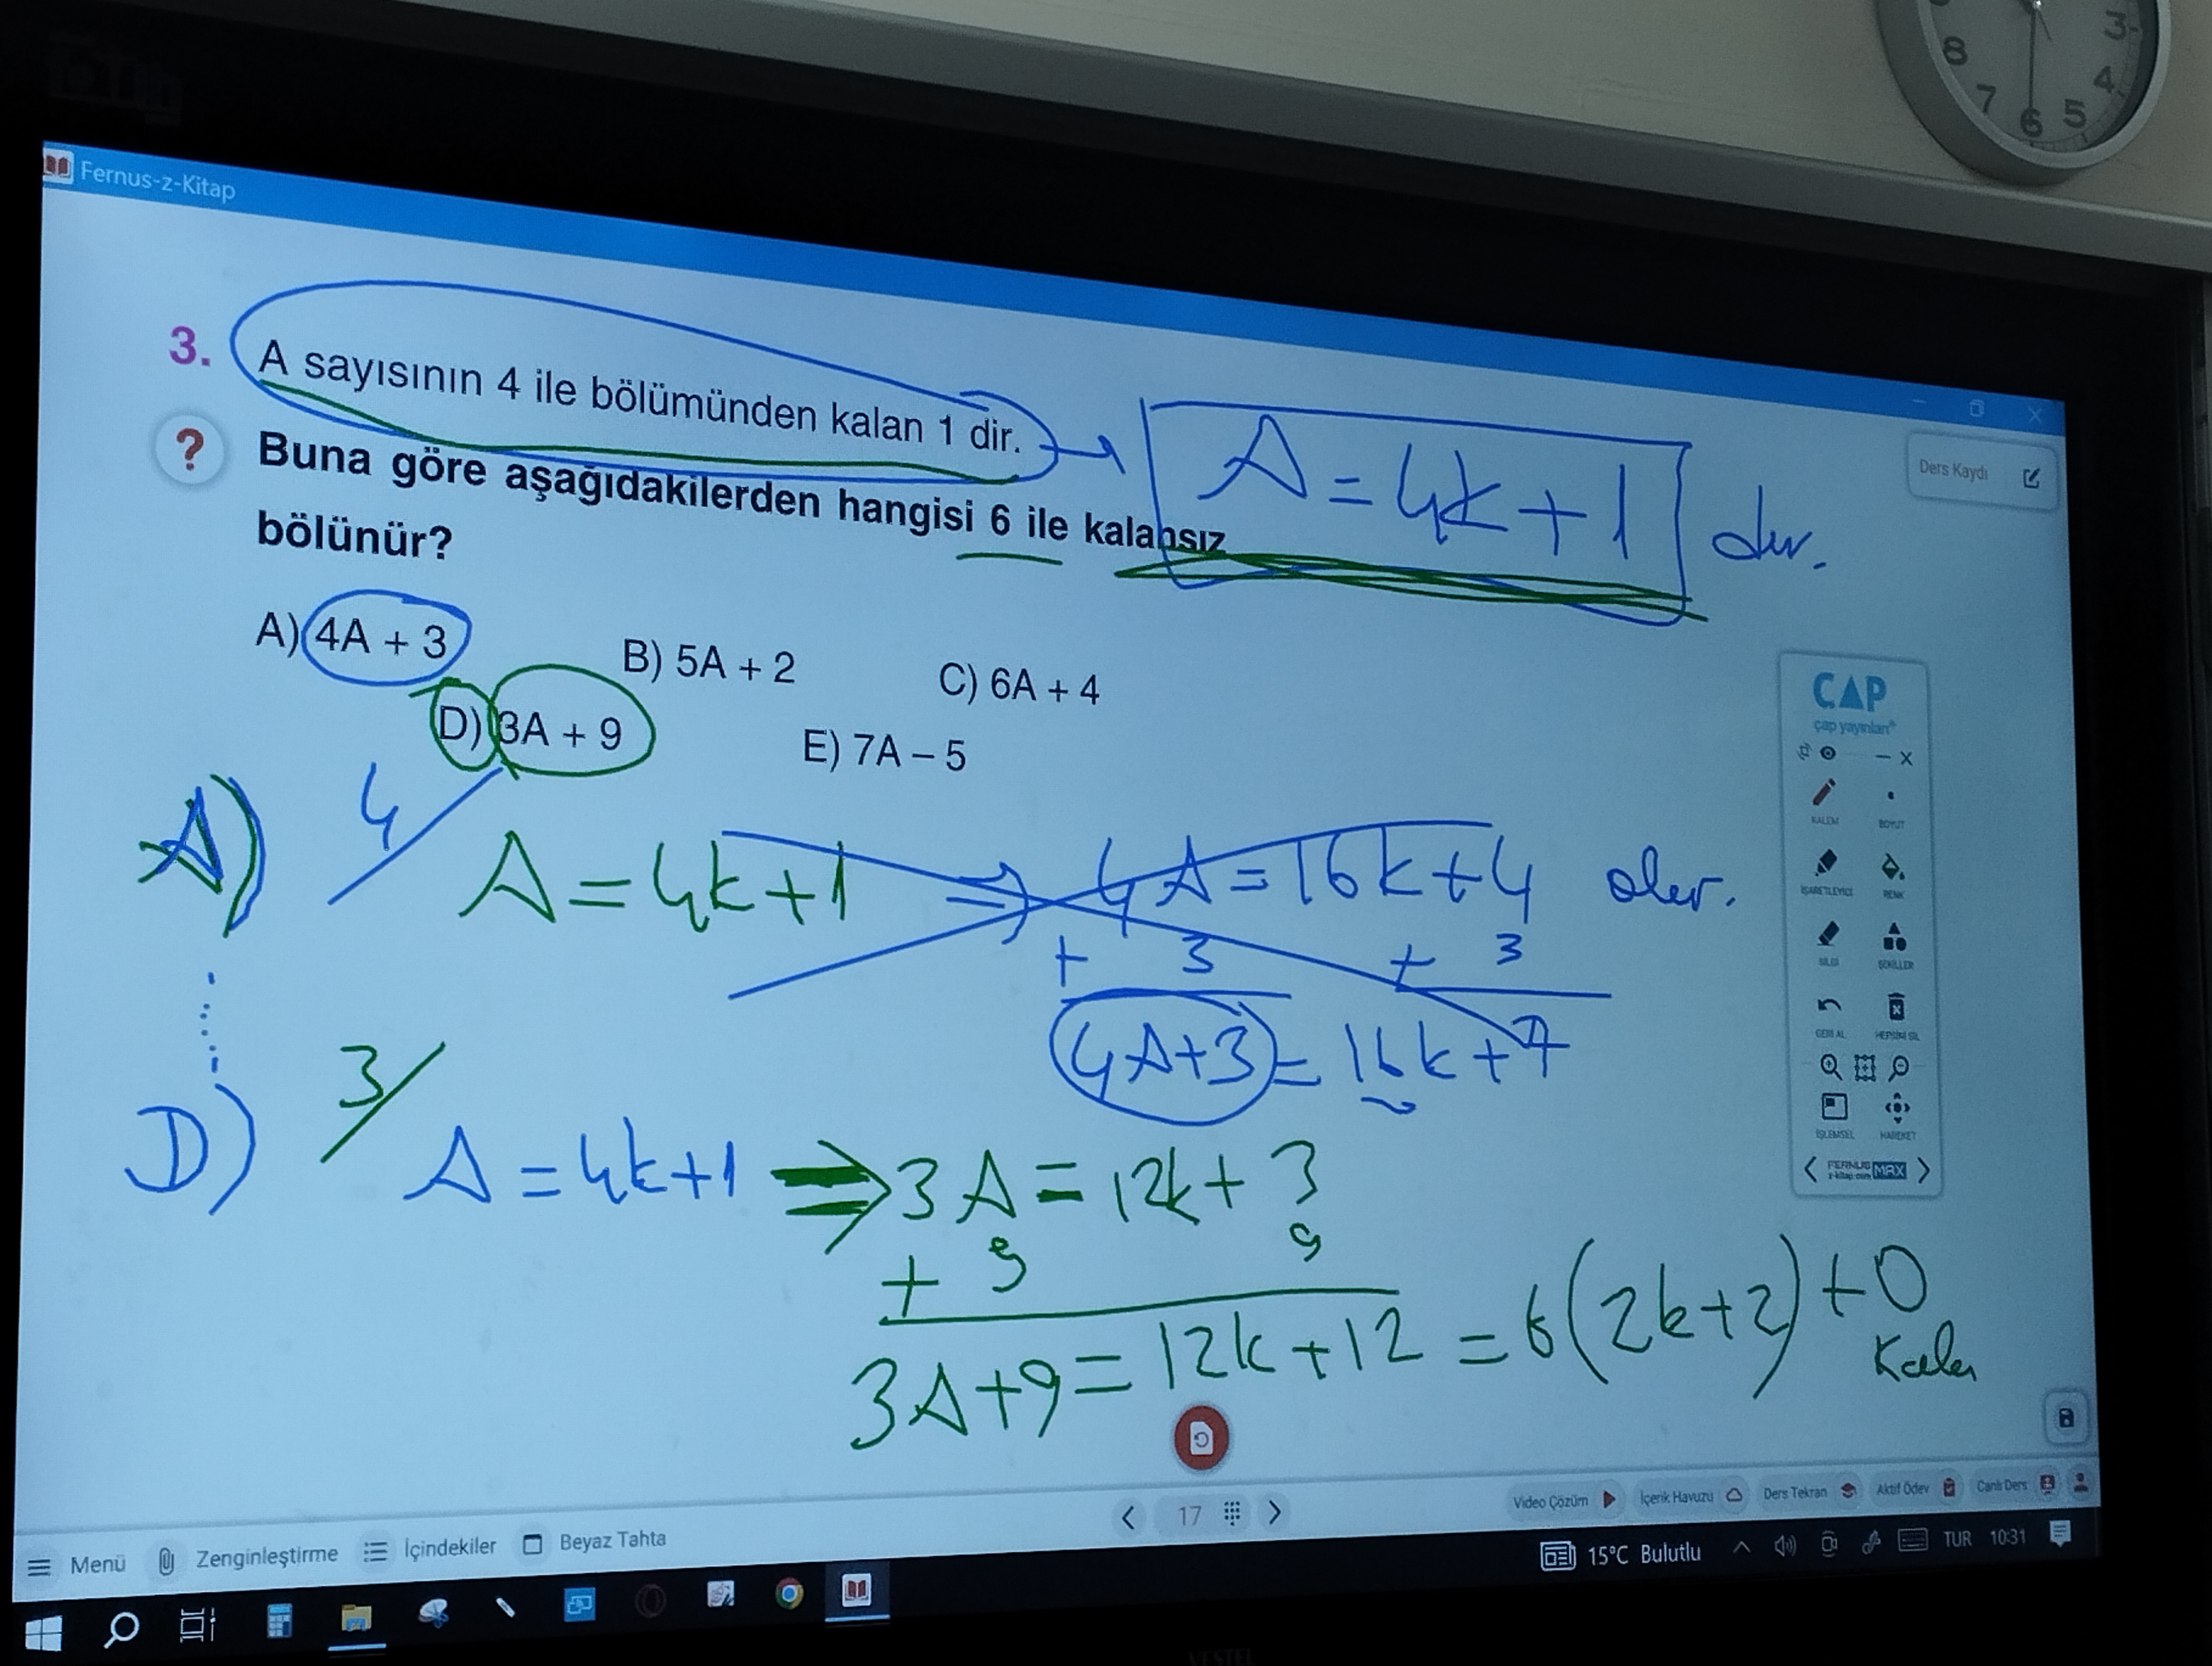 8 7 6 5 4 3
Fernus-z-Kitap
3. A sayısının 4 ile bölümünden kalan 1 dir.
A = 4k + 1 dır.
Ders Kaydı
? Buna göre aşağıdakilerden hangisi 6 ile kalansız
bölünür?
A) 4A + 3 B) 5A + 2 C) 6A + 4
D) 3A + 9 E) 7A – 5
ÇAP
çap yayınları
KALEM BOYUT
İŞARETLEYİCİ RENK
SİLGİ ŞEKİLLER
GERİ AL HEPSİNİ SİL
İŞLEMSEL HAREKET
FERNUS MAX
z-kitap.com
A) 4/ A = 4k+1 ⇒ 4A = 16k+4 olur.
+ 3 + 3
4A+3 = 16k+7
D) 3/ A = 4k+1 ⇒ 3A = 12k+3
+ 9 9
3A+9 = 12k+12 = 6(2k+2)+0
Kalan
Menü Zenginleştirme İçindekiler Beyaz Tahta 17 Video Çözüm İçerik Havuzu Ders Tekrarı Aktif Ödev Canlı Ders
15°C Bulutlu TUR 10:31
VESTEL